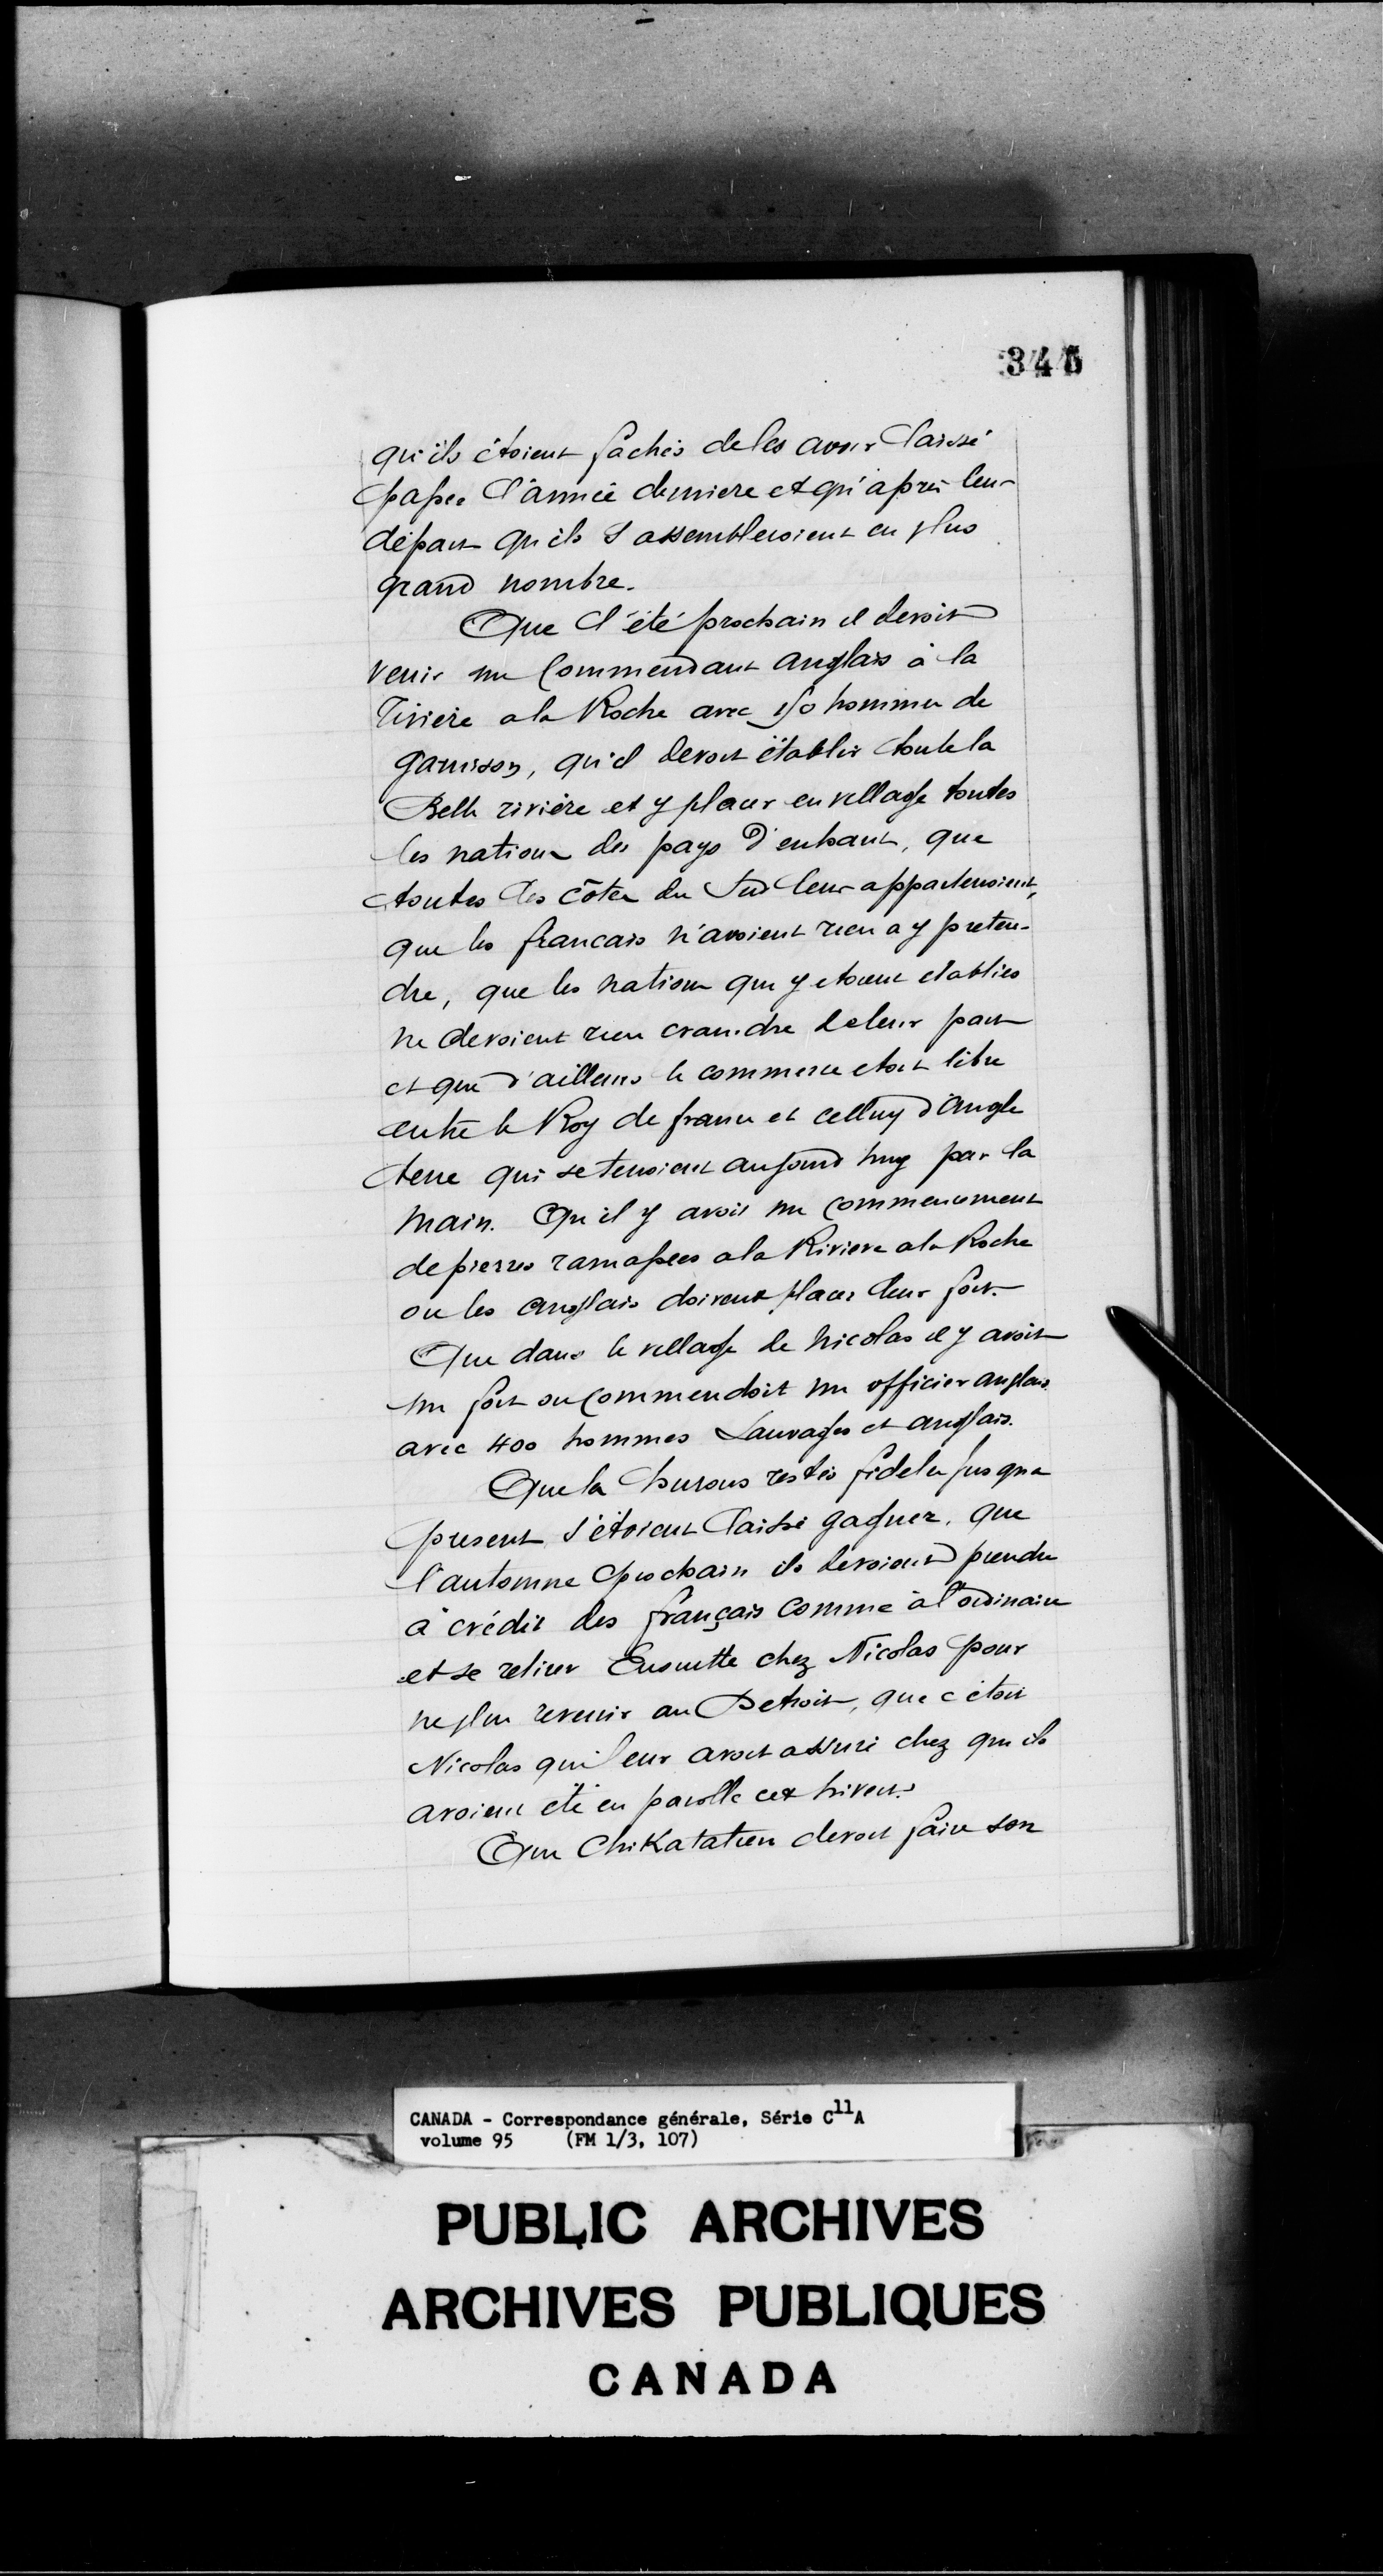 345
qu'ils étoient fachés de les avoir laissé
passer l'année derniere et qu'après leur
départ qu'ils s'assembleroient en plus
grand nombre.
Que l'été prochain il devoit
venir un Commendant anglais à la
riviére a la Roche avec hommes de
garnison, qu'il devoit établir toute la
Belle riviére et y placer en village toutes
les nations des pays d'enhaut, que
toutes les côtes du Sud leur appartenoient,
que les francais n'avoient rien a y preten-
dre, que les nations qui y etoient etablies
ne devoient rien craindre de leur part
et que d'ailleurs le commerce etoit libre
entre le Roy de france et celluy d'Angle
terre qui se tenoient aujourd huy par la
main. Qu il y avoit un commencement
de pierres ramassées a la Riviere a la Roche
ou les anglais doivent placer leur fort.
Que dans le village de Nicolas il y avoit
un fort ou commendoit un officier anglais
avec 400 hommes Sauvages et anglais.
Que les hurons restés fideles jusqua
present s'étoient laissé gagner, que
l'automne prochain ils devoient prendre
à crédit des français comme à l'ordinaire
et se retirer Ensuitte chez Nicolas pour
ne plus revenir au Detroit, que c étoit
Nicolas qui leur avoit assuré chez qui ils
avoient été en parolle cet hiver.
Que Chikatatieu devoit faire son
CANADA - Correspondance générale, Série C11A
volume 95 (FM 1/3, 107)
PUBLIC ARCHIVES
ARCHIVES PUBLIQUES
CANADA